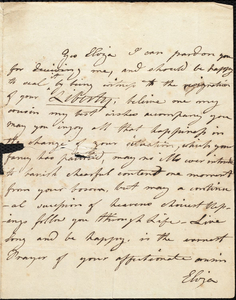 Yes Eliza I can pardon you
for deceiving me, and should be happy
to seal by being witness to the resignation
of your Liberty, believe me my
cousin my best wishes accompany you
may you enjoy all that happiness in
the change of your situation, which your
fancy has painted, may no
banish chearful content one moment
from your bosom, but may a contin-
ual succession of heavens choicest bles-
ings follow you through life. Live
long and be happy, is the earnest
Prayer of your affectionate cousin
Eliza